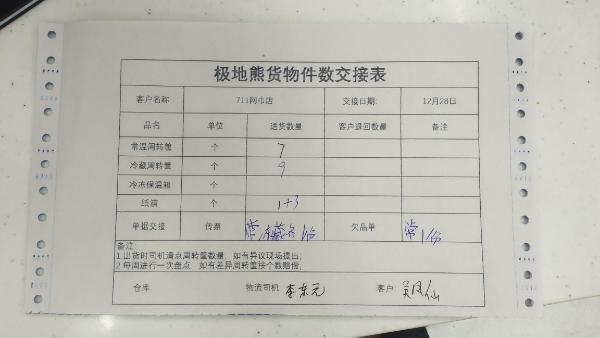 极地熊货物件数交接表
客户名称 711网巾店 交接日期: 12月28日
品名 单位 送货数量 客户退回数量 备注
常温周转筐 个 7
冷藏周转筐 个 9
冷冻保温箱 个
纸箱 个 1+3
单据交接 传票 常.冷藏各1份 欠品单 常1份
备注:
1.出货时司机清点周转筐数量，如有异议现场提出;
2.每周进行一次盘点，如有差异周转筐按个数赔偿;
仓库 物流司机: 李东元 客户: 吴凤仙